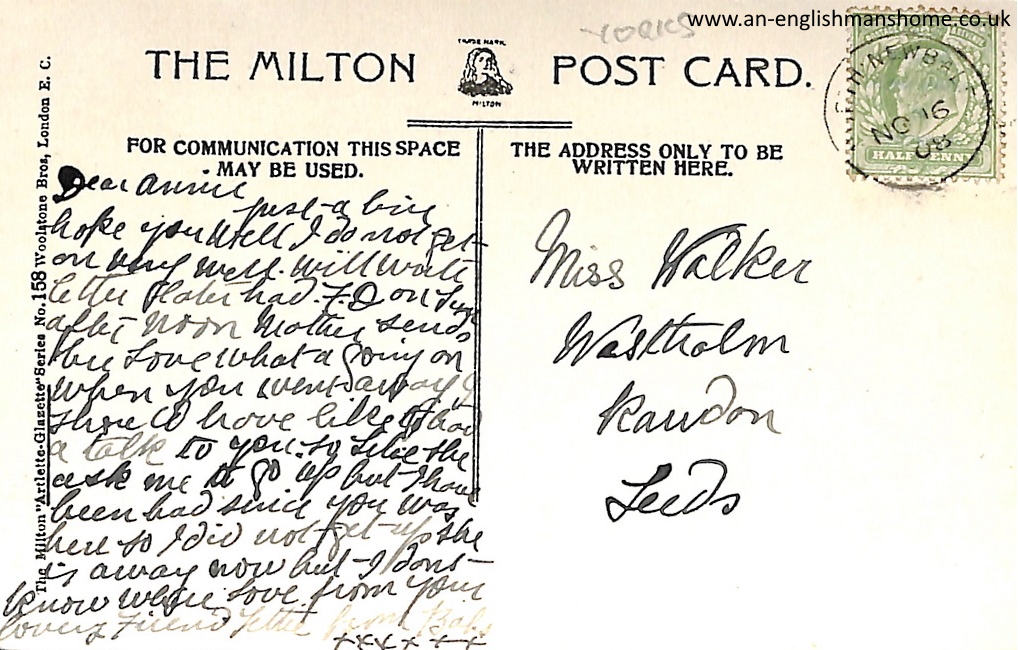 www.an-englishmanshome.co.uk
YORKS
THE MILTON POST CARD.
TRADE MARK
MILTON
NEWBALD
NO 16
08
HALFPENNY
FOR COMMUNICATION THIS SPACE
MAY BE USED.
THE ADDRESS ONLY TO BE
WRITTEN HERE.
The Milton "Artlette-Glazette" Series No. 158 Woolstone Bros, London E. C.
Dear Annie
Just a line
hope you well I do not get
on very well. will write
letter later had. F.D on
after noon Mother sends
her Love what a going on
when you went away I
should have liked to had
a talk to you. so the
ask me to go up but I have
been bad since you was
here so I did not get up she
is away now but I dont
know where Love from your
loving Friend from
xxxxxx
Miss Walker
Westholm
Rawdon
Leeds